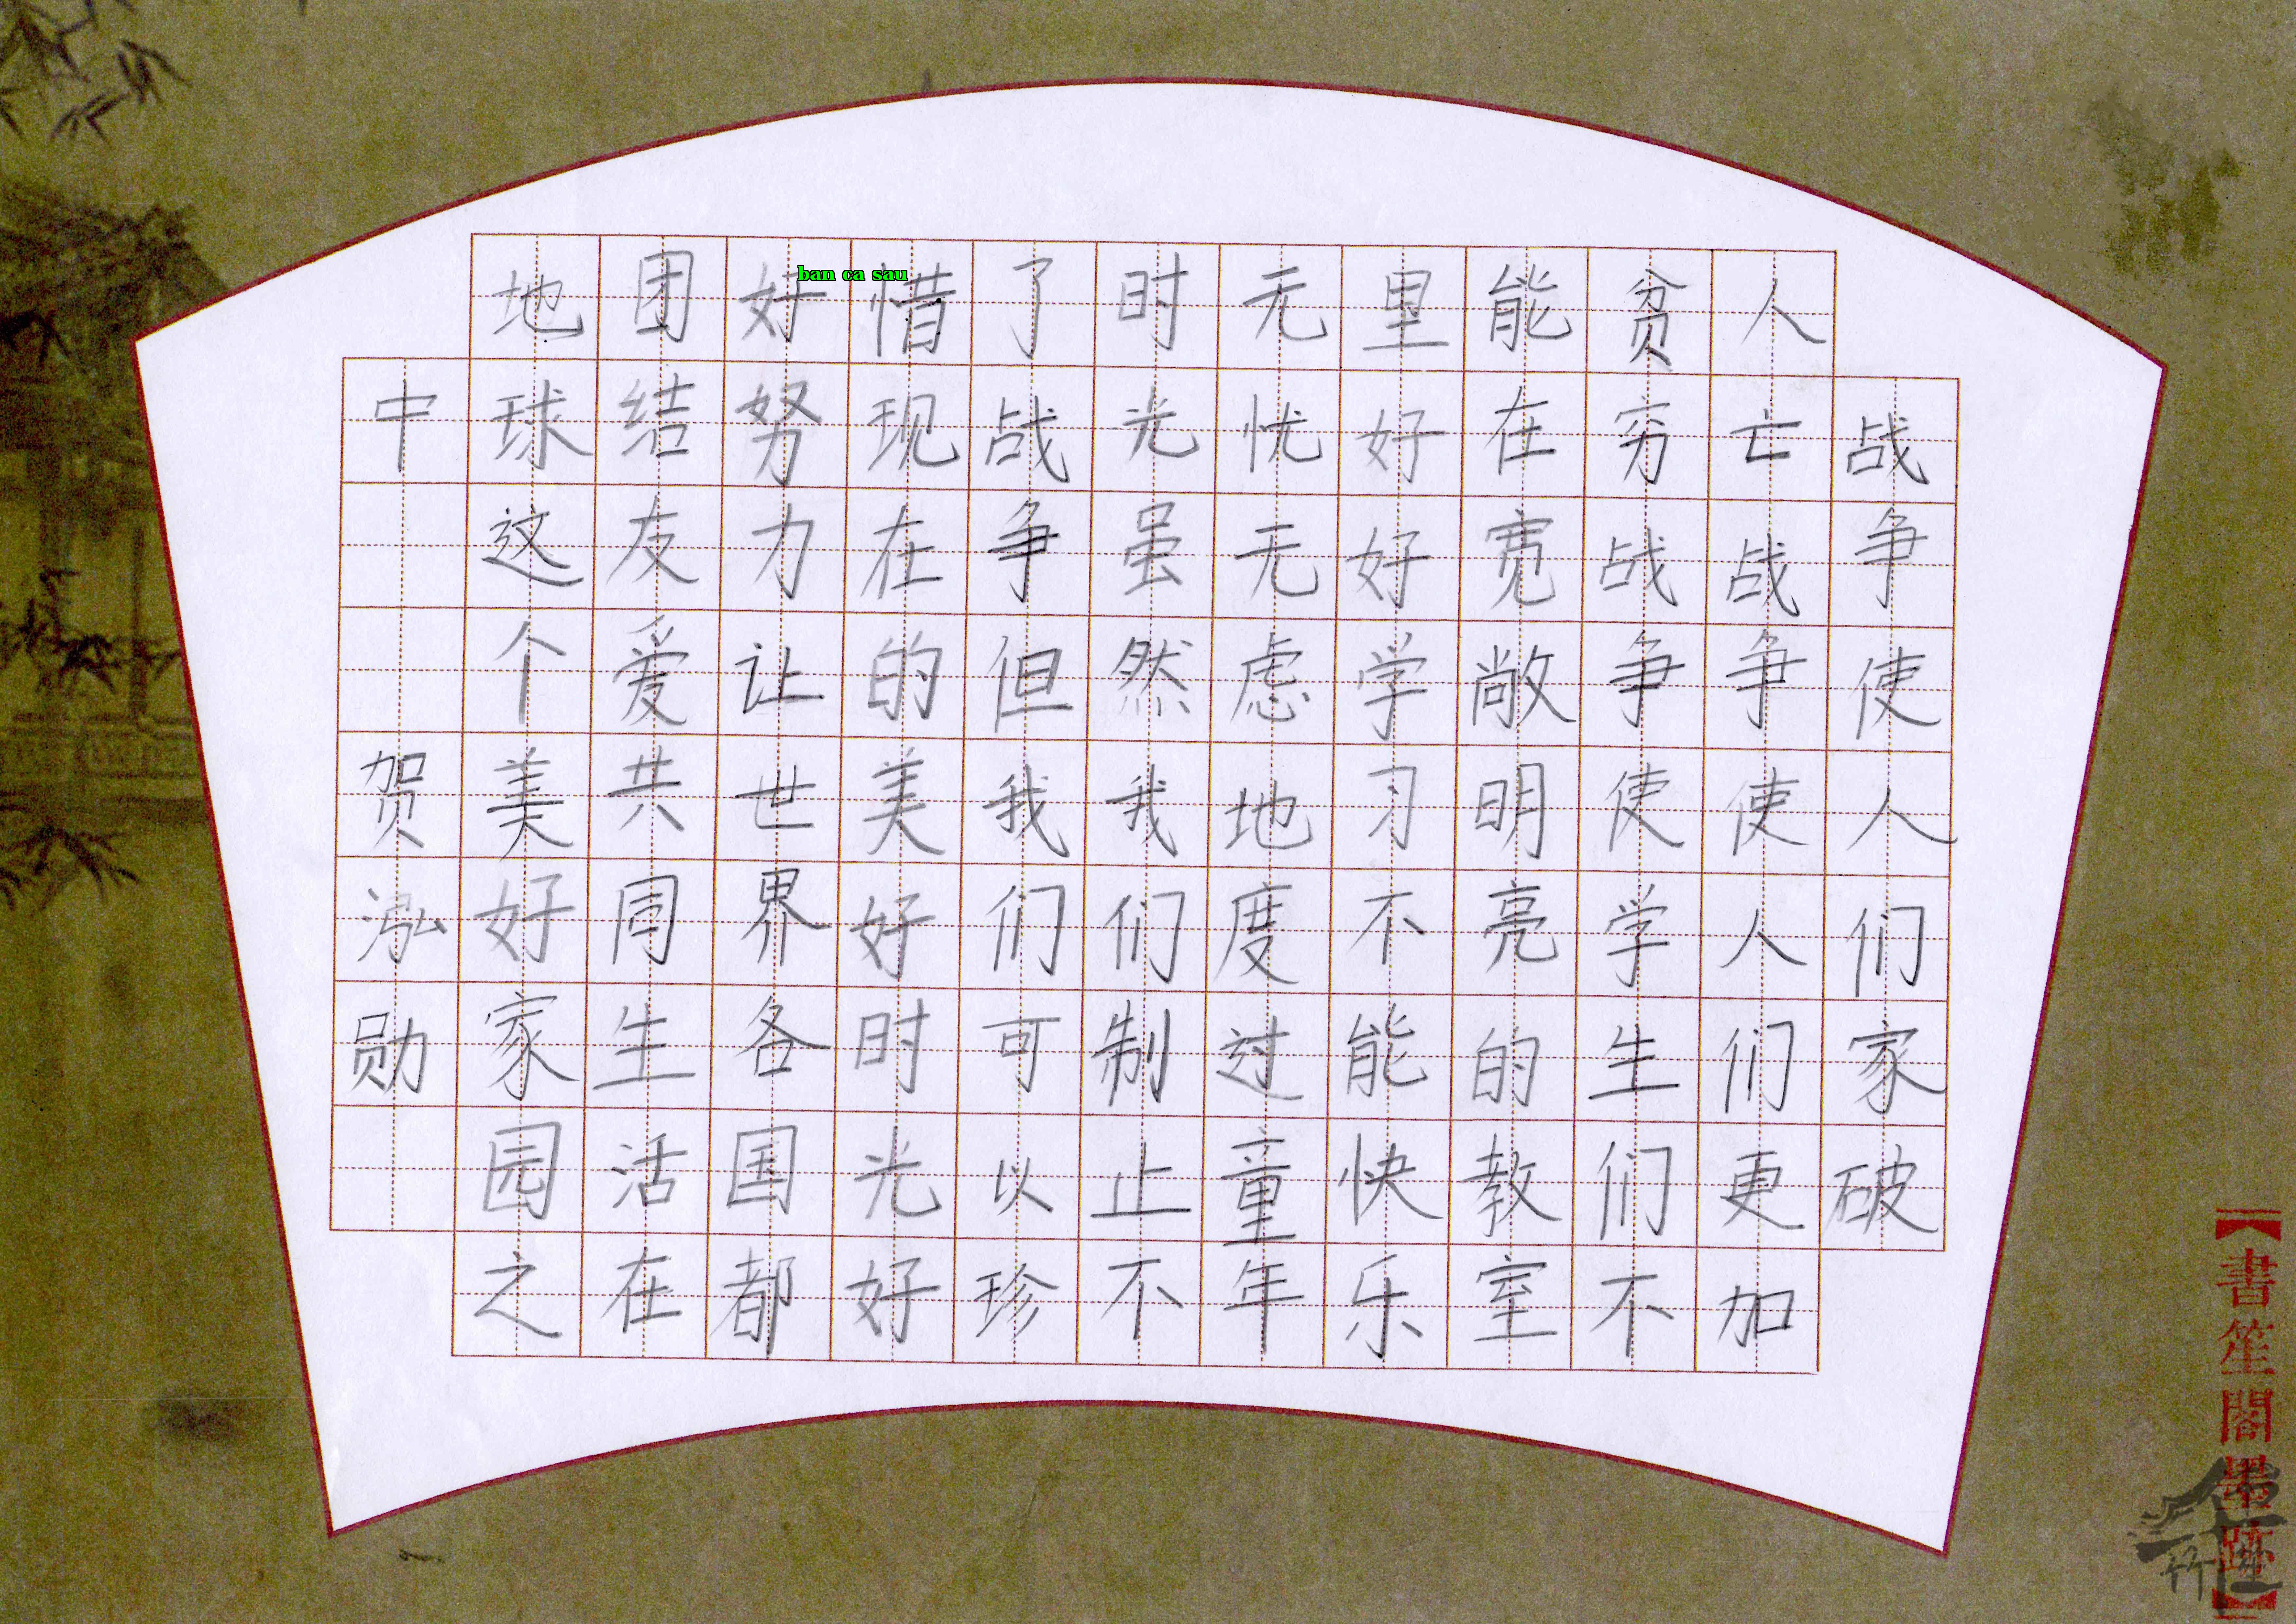 战争使人们家破
人亡战争使人们更加
贫穷战争使学生们不
能在宽敞明亮的教室
里好好学习不能快乐
无忧无虑地度过童年
时光虽然我们制止不
了战争但我们可以珍
惜现在的美好时光好
好努力让世界各国都
团结友爱共同生活在
地球这个美好家园之
中 贺泓勋
ban ca sau
【書笙閣墨跡】